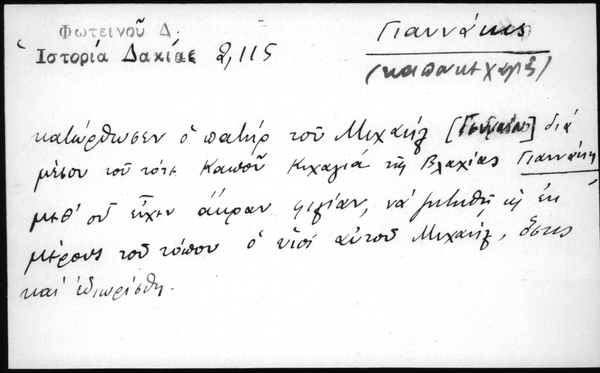 Φωτεινοῦ Δ.
Ἱστορία Δακίας 2,115
Γιαννάκης
κατώρθωσεν ὁ πατὴρ τοῦ Μιχαὴλ [] διὰ
μέσου τοῦ τότε Καποῦ Κιχαγιᾶ τῆς Βλαχίας Γιαννάκη
μεθ' οὗ εἶχεν ἄκραν φιλίαν, νὰ ζητηθῇ ἐκ
μέρους τοῦ τόπου ὁ υἱός αὐτοῦ Μιχαήλ, ὅστις
καὶ ἐδιωρίσθη.